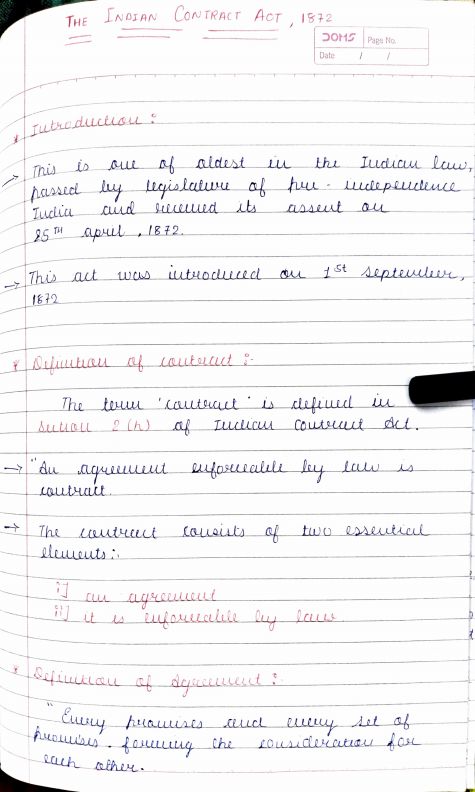 THE INDIAN CONTRACT ACT, 1872
DOMS Page No.
Date / /
* Introduction :
→ This is one of oldest in the Indian law,
passed by legislature of pre-independence
India and received its assent on
25TH april, 1872.
→ This act was introduced on 1st september,
1872
* Definition of contract :-
The term 'contract' is defined in
Section 2(h) of Indian Contract Act.
→ "An agreement enforceable by law is
contract.
→ The contract consists of two essential
elements:.
i] an agreement
ii] it is enforceable by law
* Definition of Agreement :-
"Every promises and every set of
promises. forming the consideration for
each other.